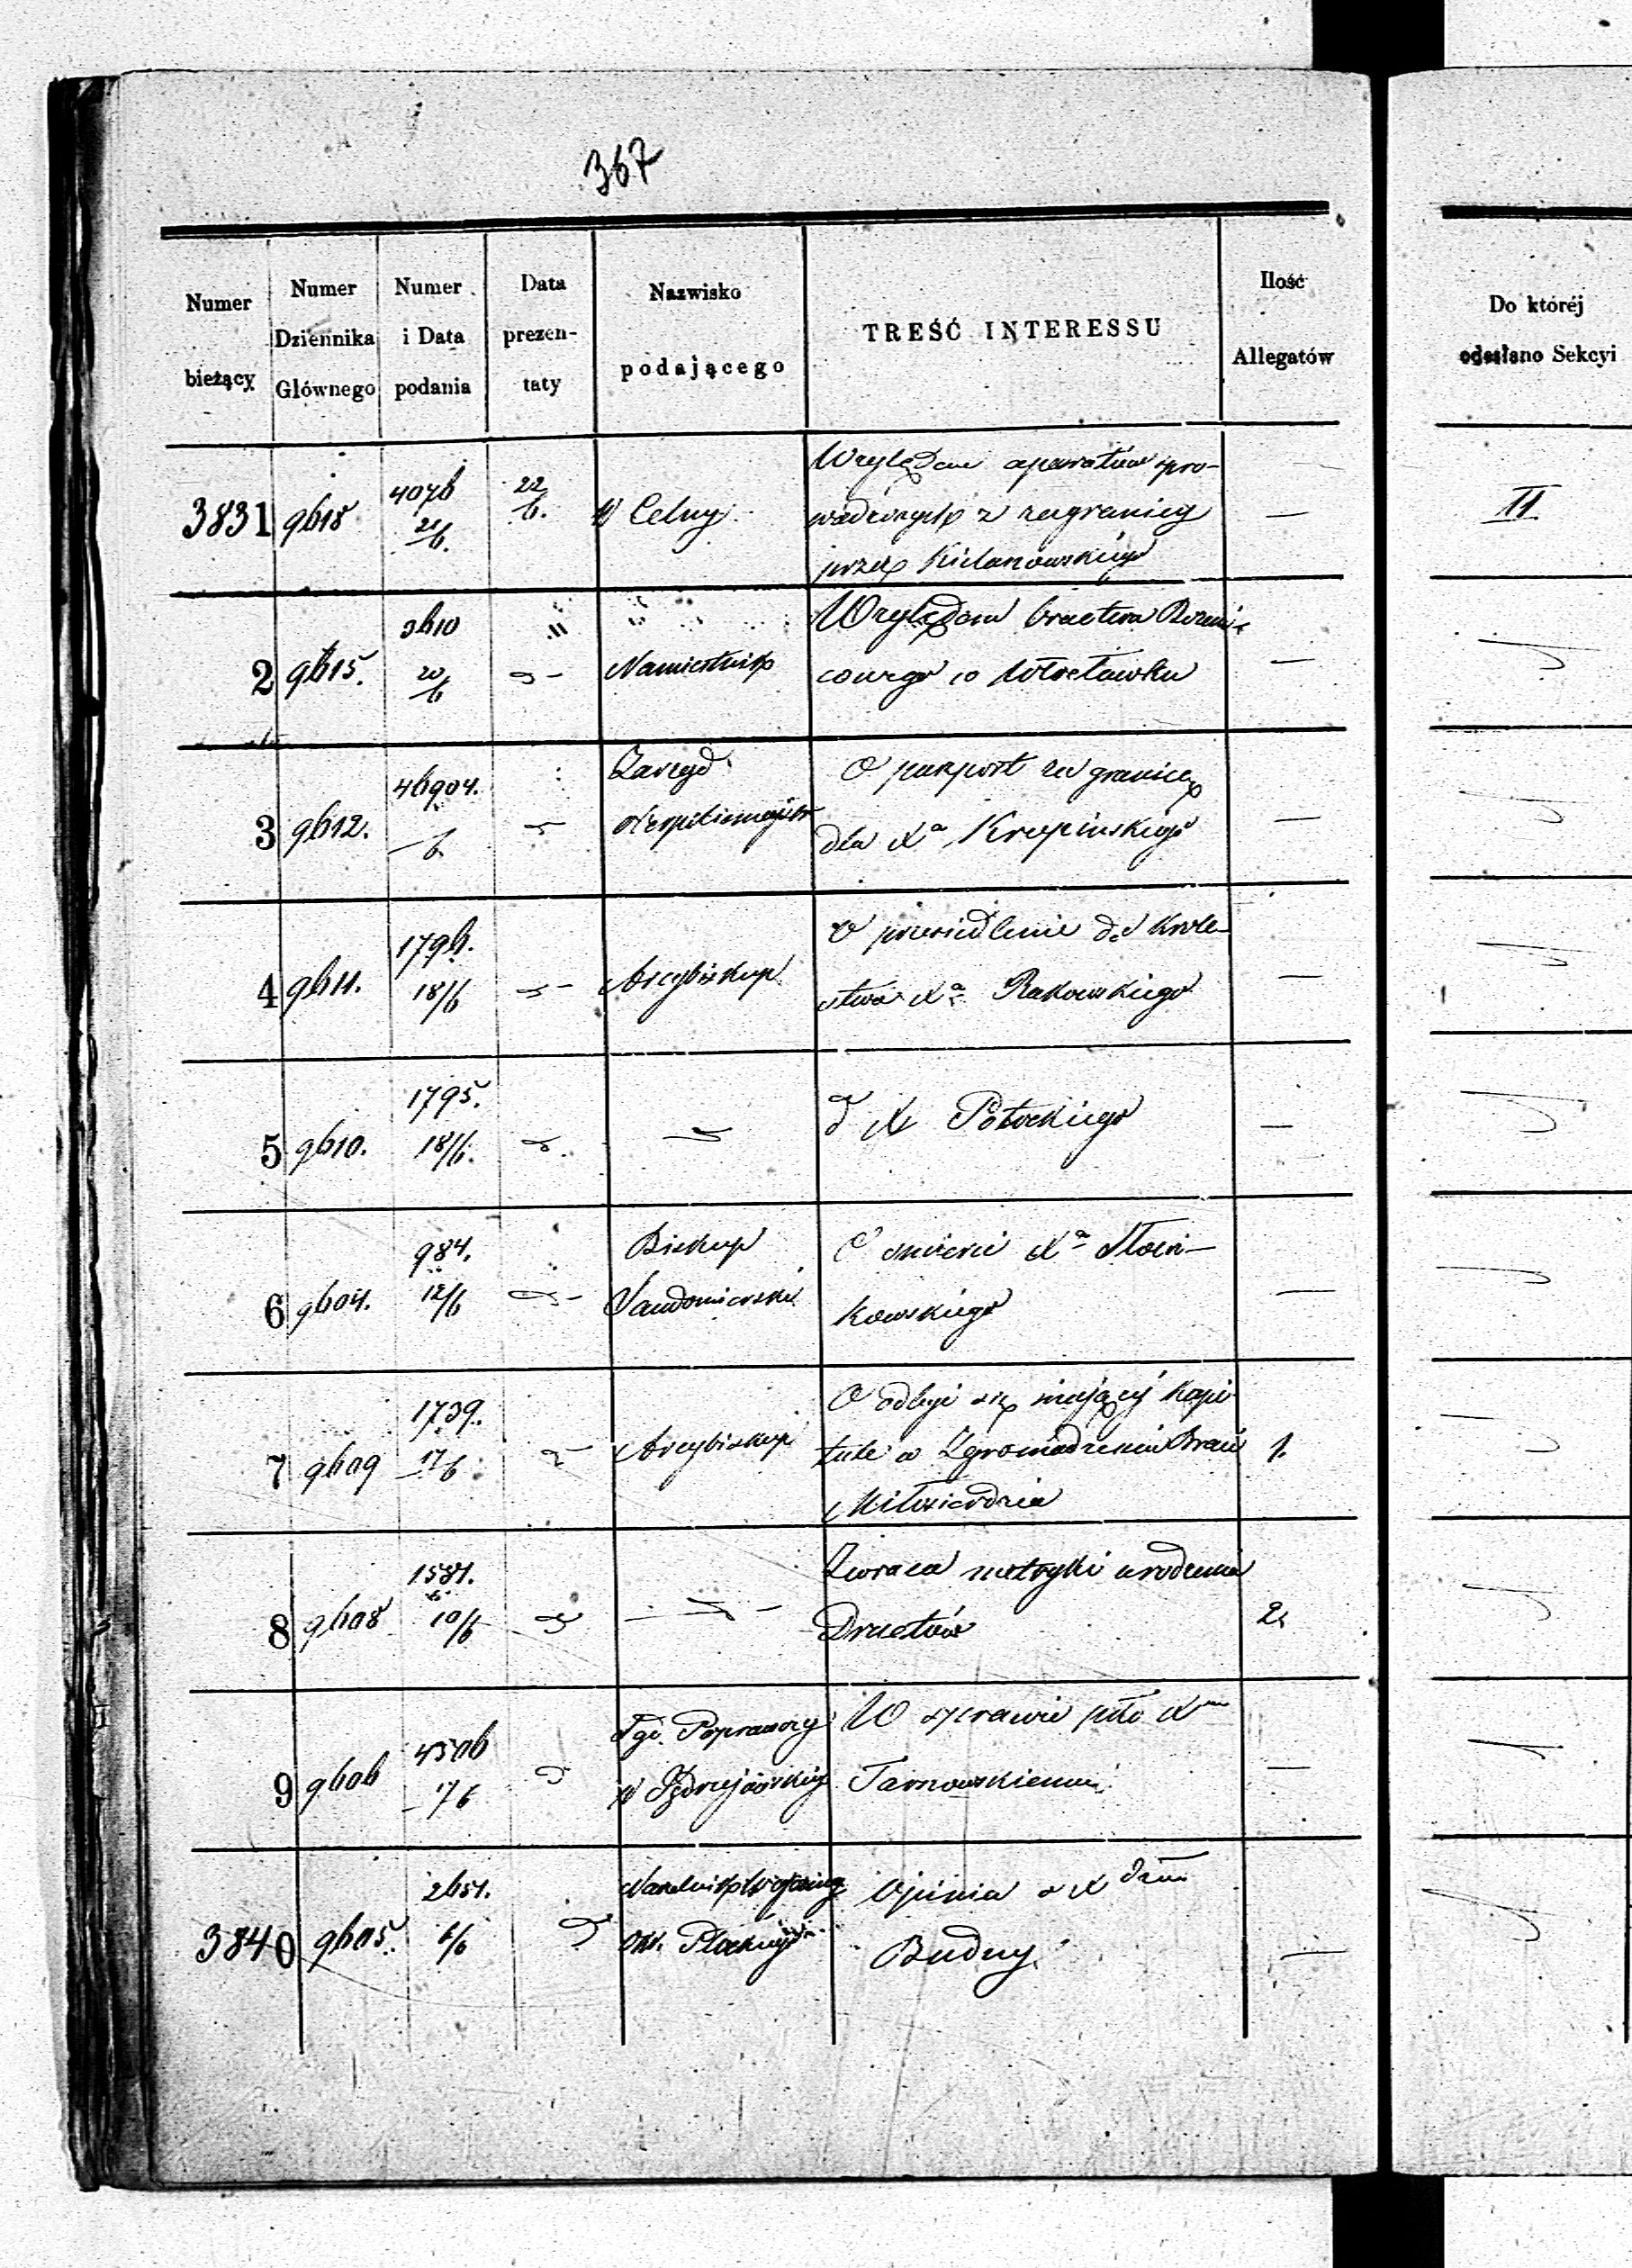 367
Numer bieżący
Numer Dziennika Głównego
Numer i Data podania
Data prezen- taty
Nazwisko podającego
TREŚĆ INTERESSU
Ilość Allegatów
Do któréj odesłano Sekcyi
3831 9618 4076 21/6. 22/6. W Celny
Względem aparatów spro-
wadzonych z zagranicy
przez Kielanowskiego
— II
2 9615. 3610 20/6 Namiestnik
Względem bractwa
w Włocławku
—
3 9612. 46904. —/6 Zarząd
O paszport za granicę
dla Xa Krupińskiego
—
4 9611. 1796. 18/6 Arcybiskup
O przesiedlenie do Króle-
stwa Xa Rakowskiego
—
5 9610. 1795. 18/6.
X Potockiego
—
6 9604. 984. 12/6 Biskup
Sandomierski
O śmierci Xa Słowi-
kowskiego
—
7 9609 1739. 17/6 Arcybiskup
O odbyć się mającej Kapi-
tule w Zgromadzeniu Braci
Miłosierdzia
1.
8 9608 1581. 10/6
Zwraca metryki urodzenia
2.
9 9606 4506 17/6 Sąd Poprawczy
W sprawie pko Xwi
Tarnowskiemu
—
3840 9605. 2651. 6/6 Naczelnik Wojenny
Okr. Płockiego
Opinia o X
Budny.
—